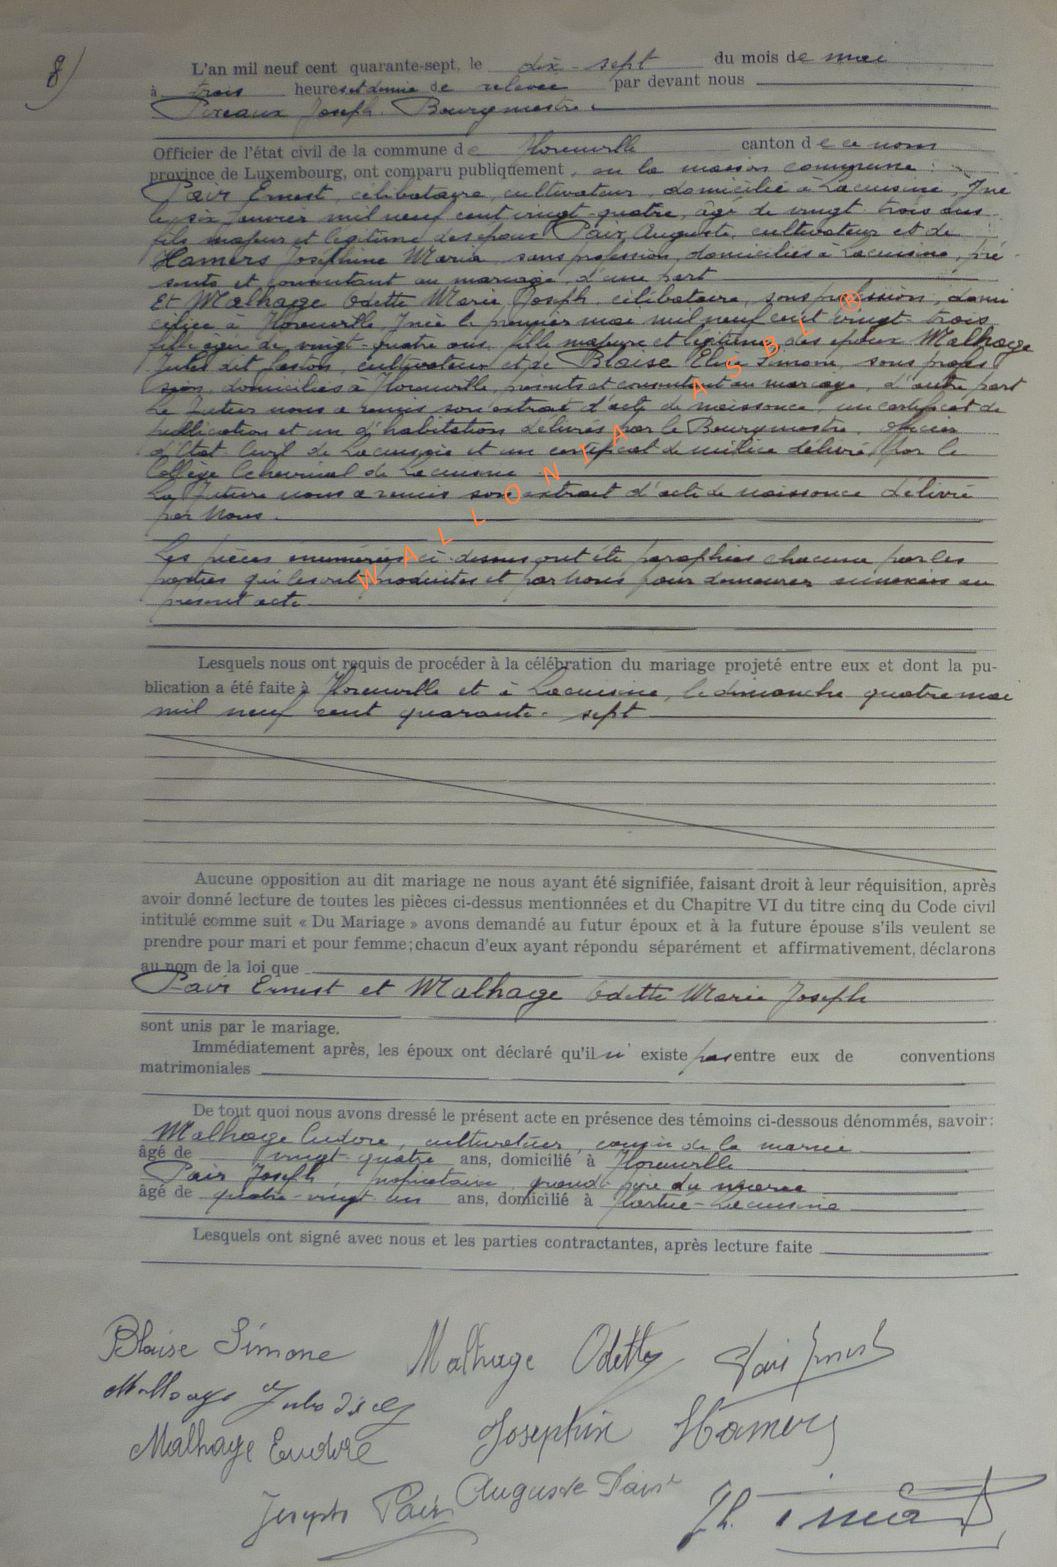 8)
L'an mil neuf cent quarante-sept, le dix-sept du mois de mai
à trois heures et demie de relevée par devant nous
Joseph, Bourgmestre
Officier de l'état civil de la commune de Florenville canton de ce nom
province de Luxembourg, ont comparu publiquement, en la maison commune :
Pair Ernest, célibataire, cultivateur, domicilié à Lacuisine, y né
le six janvier mil neuf cent vingt-quatre, âgé de vingt-trois ans
fils majeur et légitime des époux Pair Auguste, cultivateur et de
Hamers Joséphine Maria, sans profession, domiciliés à Lacuisine, pré
sents et consentant au mariage, d'une part
Et Malhage Odette Marie Joseph, célibataire, sans profession, domi
ciliée à Florenville, y née le premier mai mil neuf cent vingt-trois
âgée de vingt-quatre ans, fille majeure et légitime des époux Malhage
Jules dit Gaston, cultivateur et de Blaise Simone, sans profes
sion, domiciliés à Florenville, présents et consentant au mariage, d'autre part
Le futur nous a remis son extrait d'acte de naissance, un certificat de
publication et un d'habitation délivrés par le Bourgmestre, officier
d'Etat Civil de Lacuisine et un certificat de milice délivré par le
Collège Echevinal de Lacuisine
La future nous a remis son extrait d'acte de naissance délivré
par Nous.
Les pièces énumérées ci-dessus ont été paraphées chacune par les
parties qui les ont produites et par Nous pour demeurer annexées au
présent acte
Lesquels nous ont requis de procéder à la célébration du mariage projeté entre eux et dont la pu-
blication a été faite à Florenville et à Lacuisine, le dimanche quatre mai
mil neuf cent quarante-sept
Aucune opposition au dit mariage ne nous ayant été signifiée, faisant droit à leur réquisition, après
avoir donné lecture de toutes les pièces ci-dessus mentionnées et du Chapitre VI du titre cinq du Code civil
intitulé comme suit « Du Mariage » avons demandé au futur époux et à la future épouse s'ils veulent se
prendre pour mari et pour femme; chacun d'eux ayant répondu séparément et affirmativement, déclarons
au nom de la loi que
Pair Ernest et Malhage Odette Marie Joseph
sont unis par le mariage.
Immédiatement après, les époux ont déclaré qu'il n' existe pas entre eux de conventions
matrimoniales
De tout quoi nous avons dressé le présent acte en présence des témoins ci-dessous dénommés, savoir:
Malhage Eudore, cultivateur, cousin de la mariée
âgé de vingt-quatre ans, domicilié à Florenville
Pair Joseph, propriétaire, grand-père du marié
âgé de quatre-vingt un ans, domicilié à Lacuisine
Lesquels ont signé avec nous et les parties contractantes, après lecture faite
WALLONIA ASBL ®
Blaise Simone Malhage Odette Pair Ernest
Malhage Jules dit G
Malhage Eudore Joséphine Hamers
Joseph Pair Auguste Pair